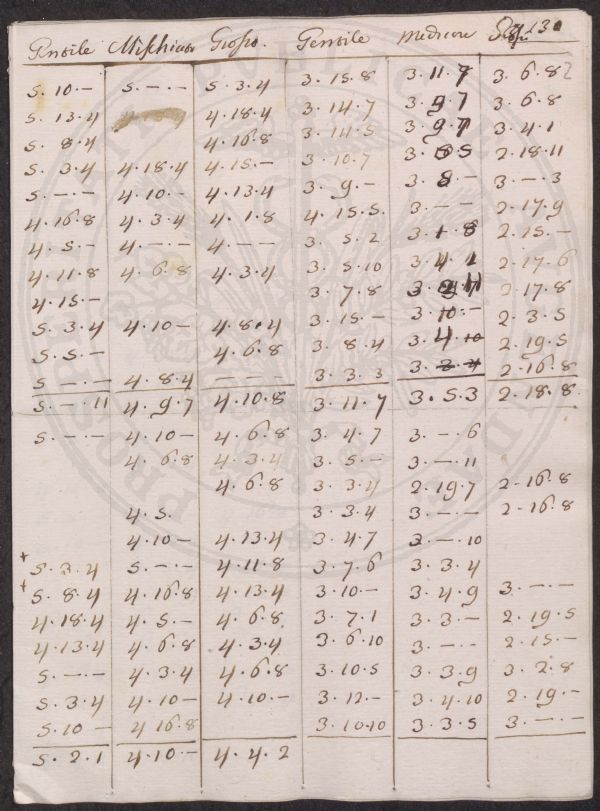 Gentile Mischiato Grosso. Gentile mediocre
5. 10. – 5. –. – 5. 3. 4 3. 15. 8 3. 11. 7 3. 6. 8
5. 13. 4 4. 18. 4 3. 14. 7 3. 9. 7 3. 6. 8
5. 8. 4 4. 16. 8 3. 14. 5 3. 9. 7 3. 4. 1
5. 3. 4 4. 18. 4 4. 15. – 3. 10. 7 3. 8 5 2. 18. 11
5. –. – 4. 10. – 4. 13. 4 3. 9. – 3. 8 – 3. –. 3
4. 16. 8 4. 3. 4 4. 1. 8 4. 15. 5. 3. –. – 2. 17. 9
4. 5. – 4. –. – 4. –. – 3. 5. 2 3. 1. 8 2. 15. –
4. 11. 8 4. 6. 8 4. 3. 4 3. 5. 10 3. 4. 1 2. 17. 6
4. 15. – 3. 7. 8 2. 17. 8
5. 3. 4 4. 10 – 4. 8. 4 3. 15. – 3. 10. – 2. 3. 5
5. 5. – 4. 6. 8 3. 8. 4 3. 4. 10 2. 19. 5
5. –. – 4. 8. 4 –. – 3. 3. 3 2. 16. 8
5. –. 11 4. 9. 7 4. 10. 8 3. 11. 7 3. 5. 3 2. 18. 8.
5. –. – 4. 10 – 4. 6. 8 3. 4. 7 3. –. 6
4. 6. 8 4. 3. 4 3. 5. – 3. –. 11
4. 6. 8 3. 3. 4 2. 19. 7 2. 16. 8
4. 5. 3. 3. 4 3. –. – 2. 16. 8
4. 10 – 4. 13. 4 3. 4. 7 3. –. 10
+ 5. 3. 4 5. –. – 4. 11. 8 3. 7. 6 3. 3. 4
+ 5. 8. 4 4. 16. 8 4. 13. 4 3. 10. – 3. 4. 9 3. –. –
4. 18. 4 4. 5. – 4. 6. 8. 3. 7. 1 3. 3. – 2. 19. 5
4. 13. 4 4. 6. 8 4. 3. 4 3. 6. 10 3. –. – 2. 15. –
5. –. – 4. 3. 4 4. 6. 8 3. 10. 5 3. 3. 9 3. 2. 8
5. 3. 4 4. 10 – 4. 10. – 3. 12. – 3. 4. 10 2. 19. –
5. 10 – 4 16. 8 3. 10. 10 3. 3. 5 3. –. –
5. 2. 1 4. 10 – 4. 4. 2